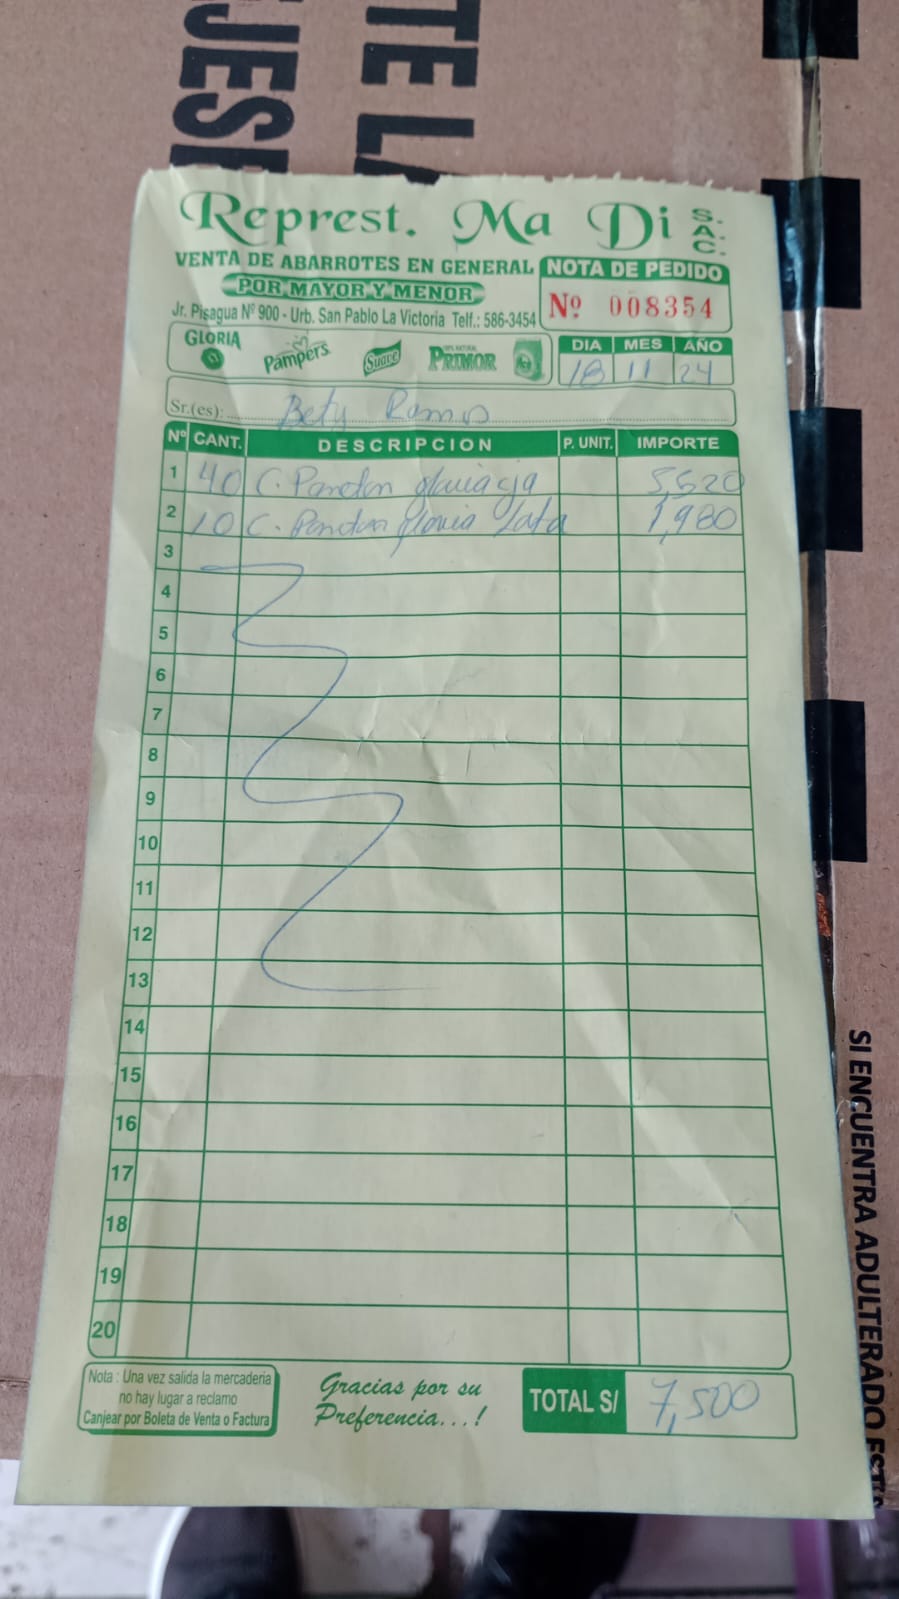 JESE
TE LA
Represt. Ma Di S.A.C.
VENTA DE ABARROTES EN GENERAL
POR MAYOR Y MENOR
Jr. Pisagua Nº 900 - Urb. San Pablo La Victoria Telf.: 586-3454
NOTA DE PEDIDO
Nº 008354
GLORIA Pampers Suave PRIMOR
DIA MES AÑO
18 11 24
Sr.(es): Bety Ramos
Nº CANT. DESCRIPCION P. UNIT. IMPORTE
1 40 C. Paneton gloria cja 5,520
2 10 C. Paneton gloria Lata 1,980
3
4
5
6
7
8
9
10
11
12
13
14
15
16
17
18
19
20
Nota : Una vez salida la mercaderia
no hay lugar a reclamo
Canjear por Boleta de Venta o Factura
Gracias por su
Preferencia...!
TOTAL S/ 7,500
SI ENCUENTRA ADULTERADO ESTA